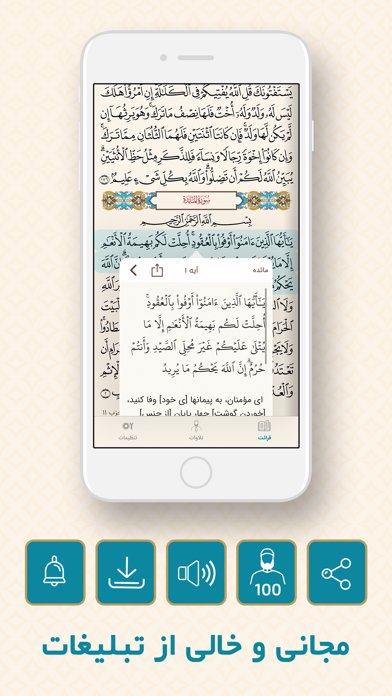 يَسْتَفْتُونَكَ قُلِ ٱللَّهُ يُفْتِيكُمْ فِى ٱلْكَلَٰلَةِ إِنِ ٱمْرُؤٌا۟ هَلَكَ
لَيْسَ لَهُۥ وَلَدٌ وَلَهُۥٓ أُخْتٌ فَلَهَا نِصْفُ مَا تَرَكَ وَهُوَ يَرِثُهَآ إِن
لَّمْ يَكُن لَّهَا وَلَدٌ فَإِن كَانَتَا ٱثْنَتَيْنِ فَلَهُمَا ٱلثُّلُثَانِ مِمَّا تَرَكَ
وَإِن كَانُوٓا۟ إِخْوَةً رِّجَالًا وَنِسَآءً فَلِلذَّكَرِ مِثْلُ حَظِّ ٱلْأُنثَيَيْنِ
يُبَيِّنُ ٱللَّهُ لَكُمْ أَن تَضِلُّوا۟ وَٱللَّهُ بِكُلِّ شَىْءٍ عَلِيمٌۢ ۝١٧٦
سُورَةُ المَائِدَة
بِسْمِ ٱللَّهِ ٱلرَّحْمَٰنِ ٱلرَّحِيمِ
يَٰٓأَيُّهَا ٱلَّذِينَ ءَامَنُوٓا۟ أَوْفُوا۟ بِٱلْعُقُودِ أُحِلَّتْ لَكُم بَهِيمَةُ ٱلْأَنْعَٰمِ
مائده
آیه ۱
يَٰٓأَيُّهَا ٱلَّذِينَ ءَامَنُوٓا۟ أَوْفُوا۟ بِٱلْعُقُودِۚ
أُحِلَّتْ لَكُم بَهِيمَةُ ٱلْأَنْعَٰمِ إِلَّا مَا
يُتْلَىٰ عَلَيْكُمْ غَيْرَ مُحِلِّى ٱلصَّيْدِ وَأَنتُمْ
حُرُمٌۗ إِنَّ ٱللَّهَ يَحْكُمُ مَا يُرِيدُ
ای مؤمنان، به پیمانها [ی خود] وفا کنید،
[خوردن گوشت] چهار پایان [از جنس]
قرائت
تلاوات
تنظیمات
100
مجانی و خالی از تبلیغات